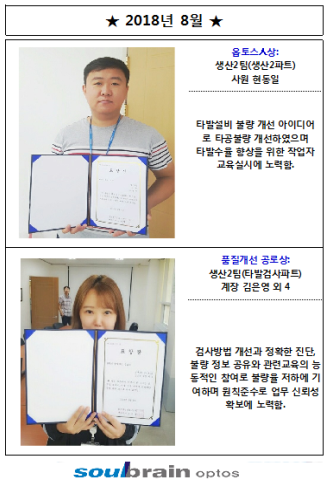 ★ 2018년 8월 ★
옵토스人상:
생산2팀(생산2파트)
사원 현동일
타발설비 불량 개선 아이디어
로 타공불량 개선하였으며
타발수율 향상을 위한 작업자
교육실시에 노력함.
표 창 장
품질개선 공로상:
생산2팀(타발검사파트)
계장 김은영 외 4
검사방법 개선과 정확한 진단,
불량 정보 공유와 관련교육의 능
동적인 참여로 불량율 저하에 기
여하며 원칙준수로 업무 신뢰성
확보에 노력함.
표 창 장
soulbrain optos